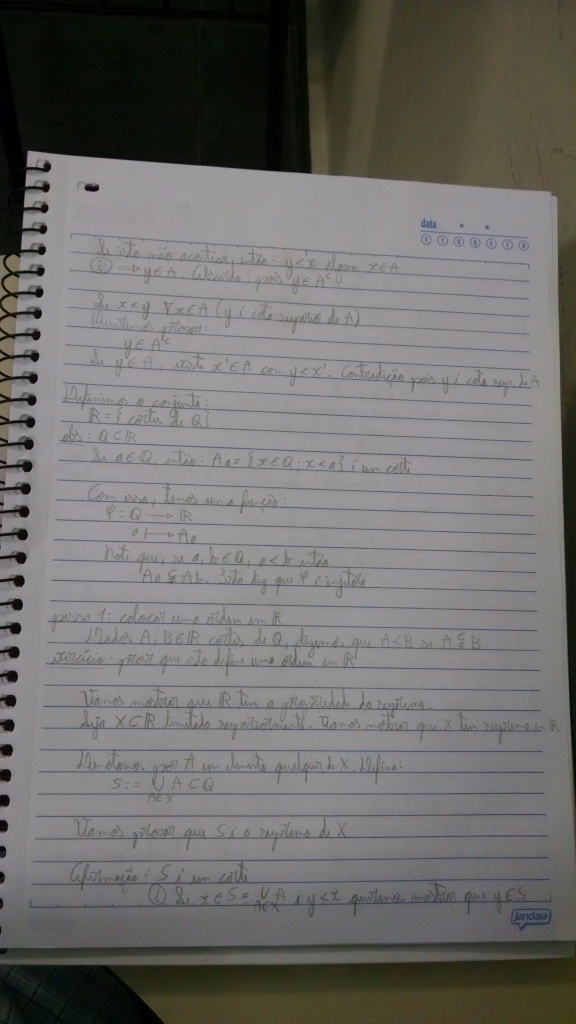 data
Se isto não acontece, então: y<x algum x∈A
(i) ⟹ y∈A. Absurdo, pois y∈A^c
Se x<y ∀x∈A (y é cota superior de A)
Queremos provar:
y∈A^c
Se y∈A, existe x'∈A com y<x'. Contradição pois y é cota sup. de A
Definimos o conjunto:
ℝ = { cortes de ℚ}
obs: ℚ⊂ℝ
Se a∈ℚ, então: Aa = {x∈ℚ; x<a} é um corte
Com isso, temos uma função:
φ: ℚ ⟶ ℝ
a ⟼ Aa
Note que, se a, b∈ℚ, a<b então
Aa ⊊ Ab. Isto diz que φ é injetora
passo 1: colocar uma ordem em ℝ
Dados A, B∈ℝ cortes de ℚ, dizemos que A<B se A⊊B
exercício: provar que isto define uma ordem em ℝ
Vamos mostrar que ℝ tem a propriedade do supremo.
Seja X⊂ℝ limitado superiormente. Vamos mostrar que X tem supremo em ℝ
Denotamos por A um elemento qualquer de X. Defina:
S := ∪ A ⊂ ℚ
A∈X
Vamos provar que S é o supremo de X
Afirmação: S é um corte
(i) Se x∈S = ∪ A e y<x queremos mostrar que y∈S
A∈X
jandaia